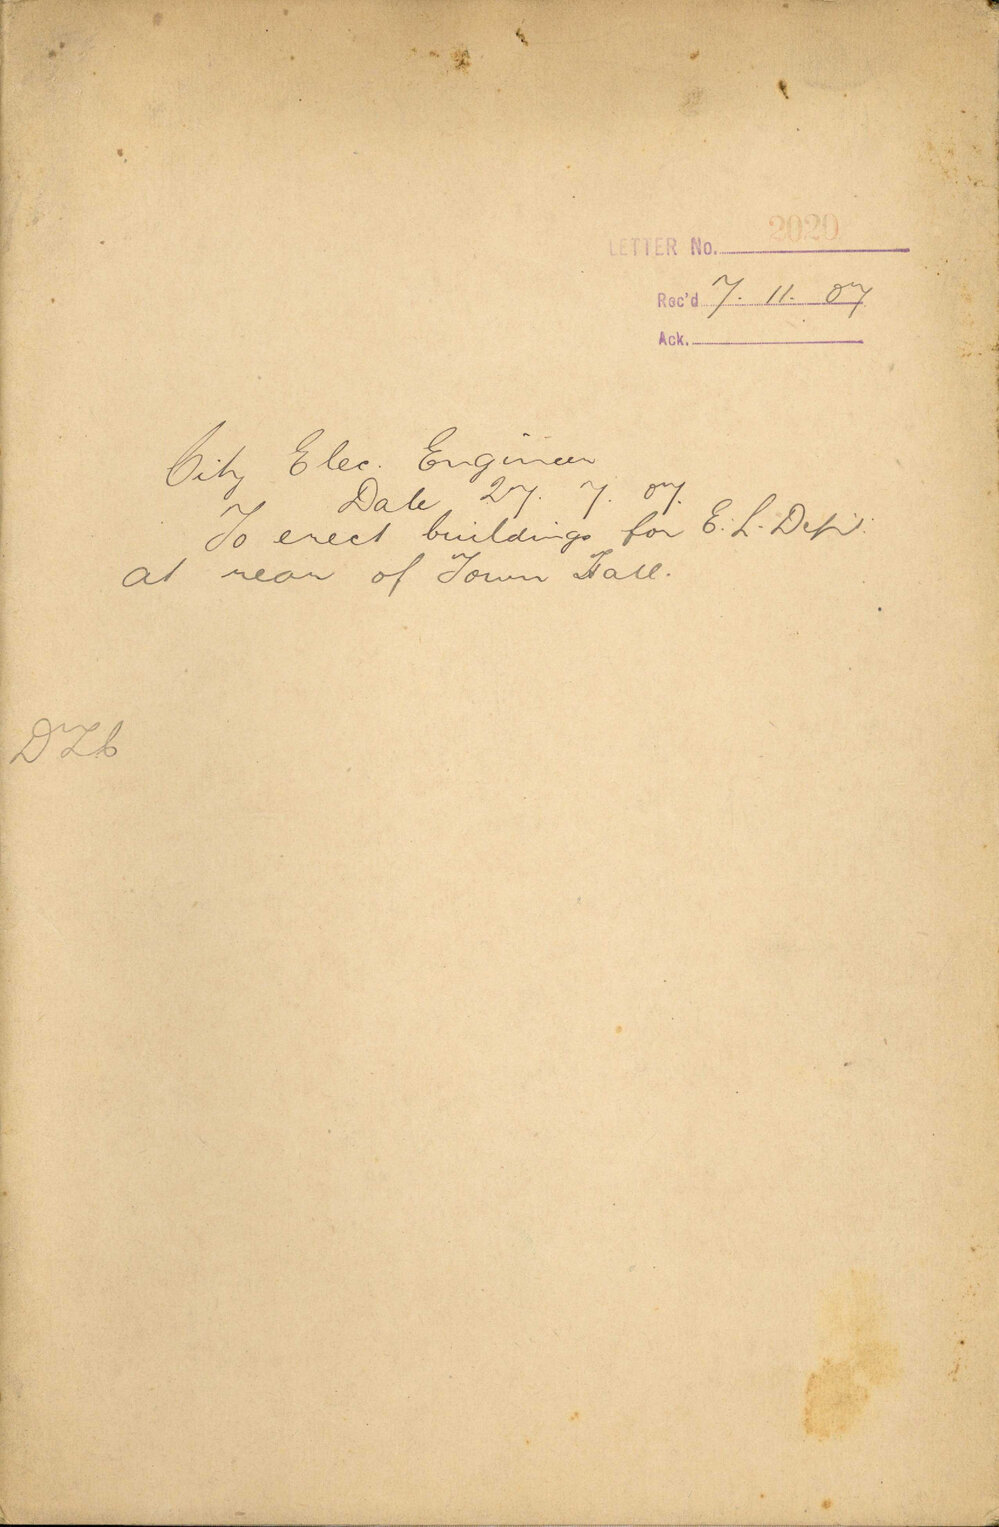 LETTER No. 2020
Rec'd 7. 11. 07
Ack.
City Elec. Engineer
Date 27. 7. 07.
To erect buildings for E. L. Dept.
at rear of Town Hall.